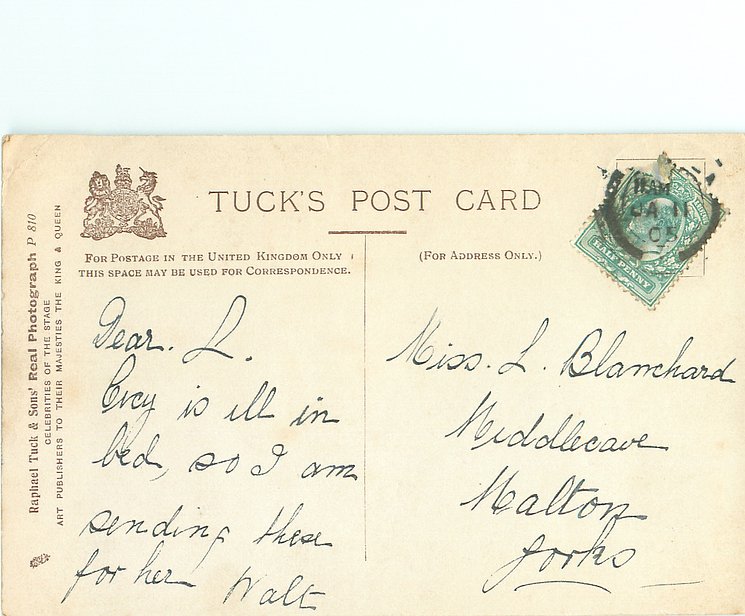 TUCK'S POST CARD
FOR POSTAGE IN THE UNITED KINGDOM ONLY
THIS SPACE MAY BE USED FOR CORRESPONDENCE.
(FOR ADDRESS ONLY.)
Raphael Tuck & Sons' Real Photograph P 810
CELEBRITIES OF THE STAGE
ART PUBLISHERS TO THEIR MAJESTIES THE KING & QUEEN
Dear. L.
Cicy is ill in
bed, so I am
sending these
for her Walt
Miss. L. Blanchard
Middlecave
Malton
Yorks
11 AM
JA 11
05
HALF PENNY